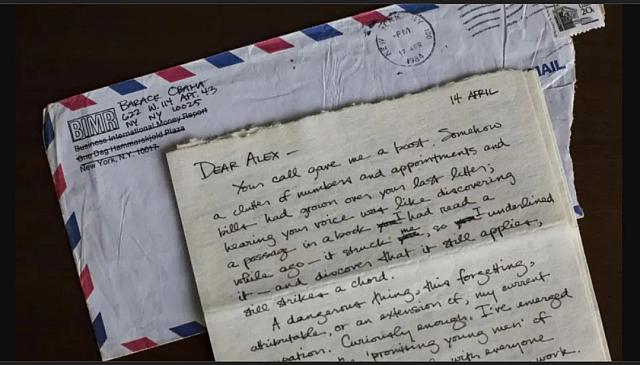 BARACK OBAMA
622 W. 114 APT. 43
NY NY 10025
BIMR
Business International Money Report
One Dag Hammarskjold Plaza
New York, N.Y. 10017
NEW YORK NY 100
PM
17 APR
1984
20c
MAIL
14 APRIL
DEAR ALEX —
Your call gave me a boost. Somehow
a clutter of numbers and appointments and
bills had grown over your last letter;
hearing your voice was like discovering
a passage in a book you I had read a
while ago — it struck me, so you I underlined
it — and discover that it still applies,
still strikes a chord.
A dangerous thing, this forgetting,
attributable, or an extension of, my current
Curiously enough, I've emerged
'promising young men' of
with everyone
work.